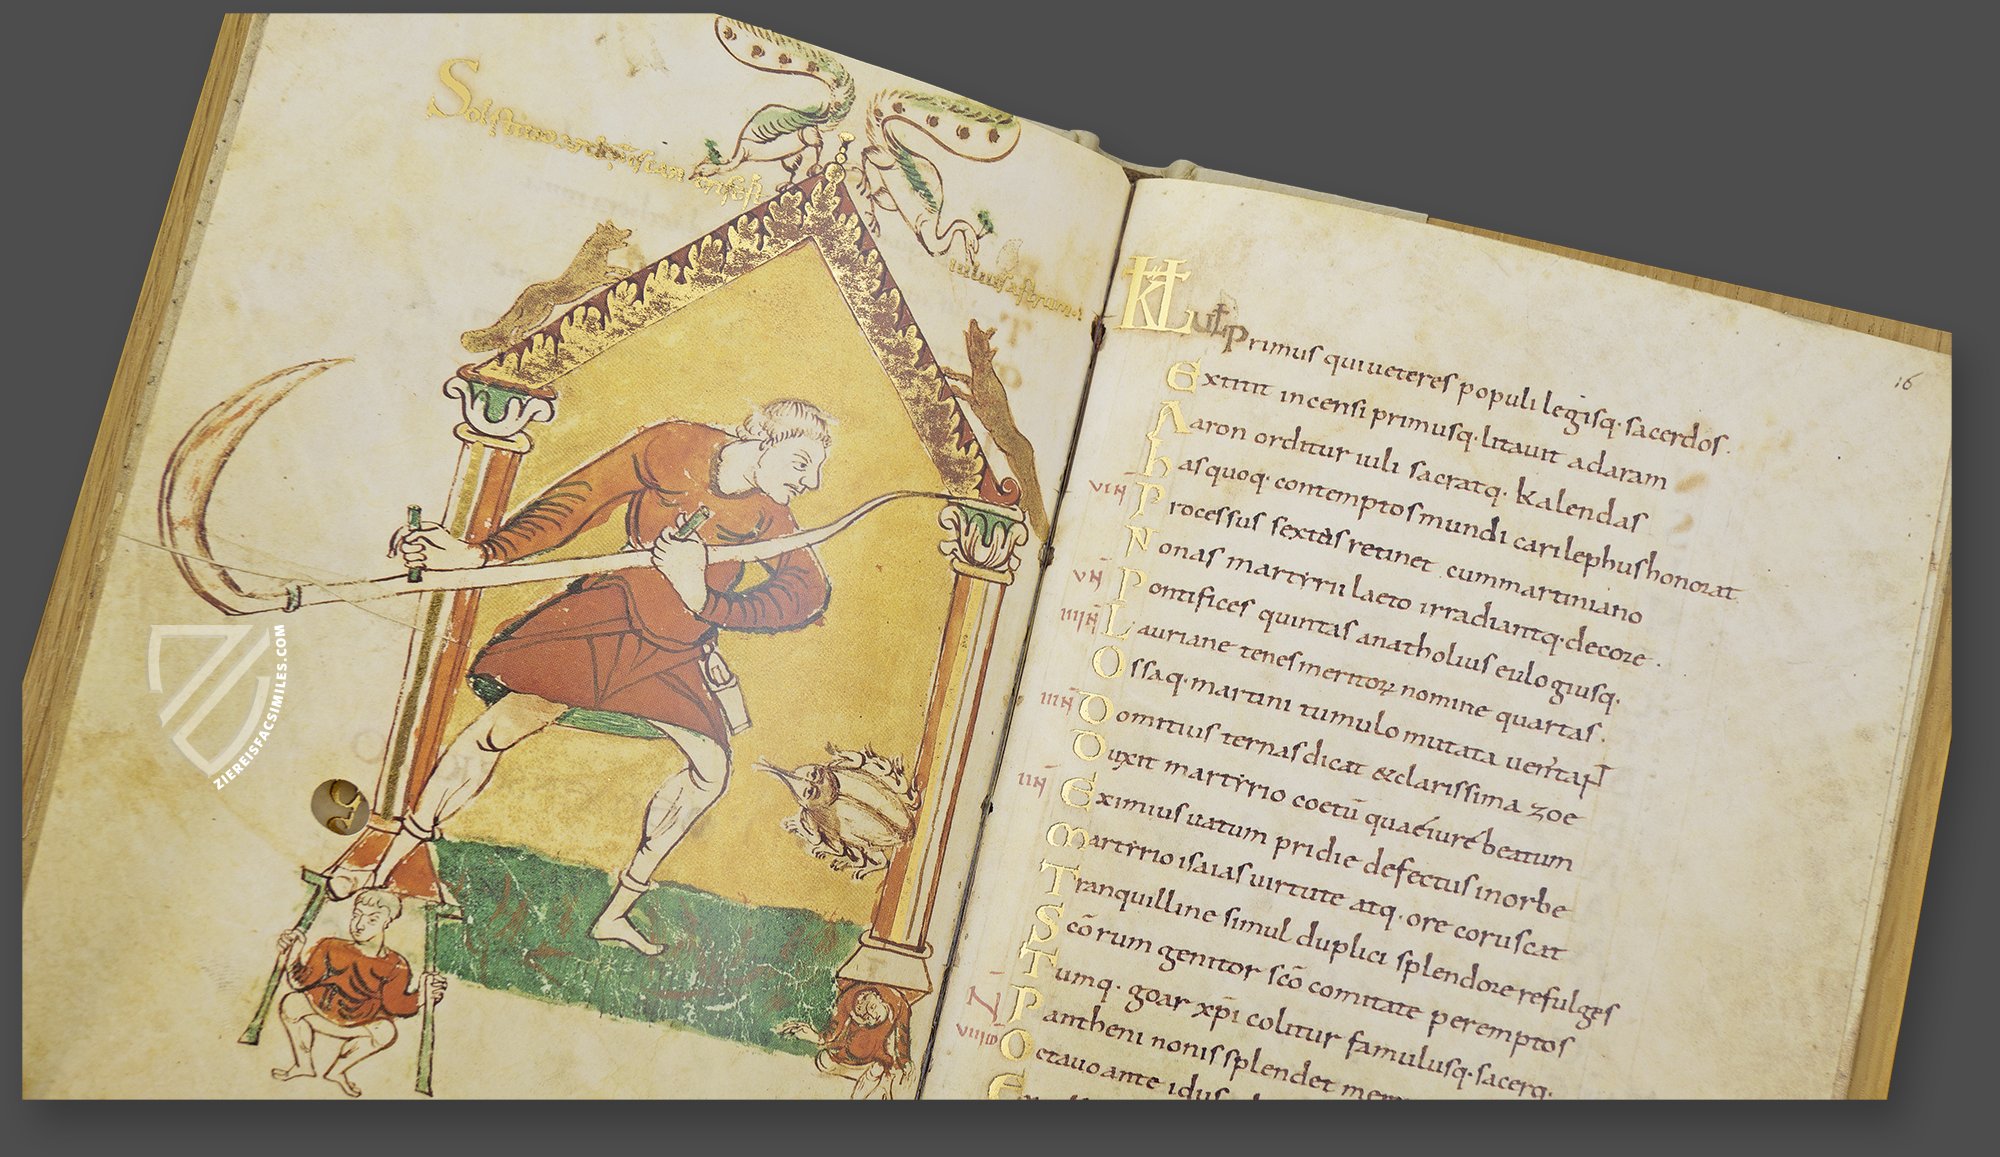 Solstitio ardentis cancri fert
iulius astrum
ZIEREISFACSIMILES.COM
16
KL iulP
rimus qui ueteres populi legisq· sacerdos·
Extitit incensi primusq· litauit ad aram
Aaron orditur iuli sacratq· kalendas
hasquoq· contemptos mundi carilephus honorat
VIN Processus sextas retinet cummartiniano
Nonas martyrii laeto irradiantq· decore·
VN Pontifices quintas anatholius eulogiusq·
IIIIN Lauriane tenes meritoꝝ nomine quartas·
Ossaq· martini tumulo mutata
IIIN Domitius ternas dicat &clarissima zoe
Duxit martyrio coetū quae iure beatum
IIN Eximius uatum pridie defectus inorbe
Martyrio isaias uirtute atq· ore coruscat
Tranquilline simul duplici splendore refulges
Scōrum genitor scō comitate peremptos
Tumq· goar xp̄i colitur famulusq· sacerq·
N Pantheni nonis splendet
VIIIID Octauo ante idus